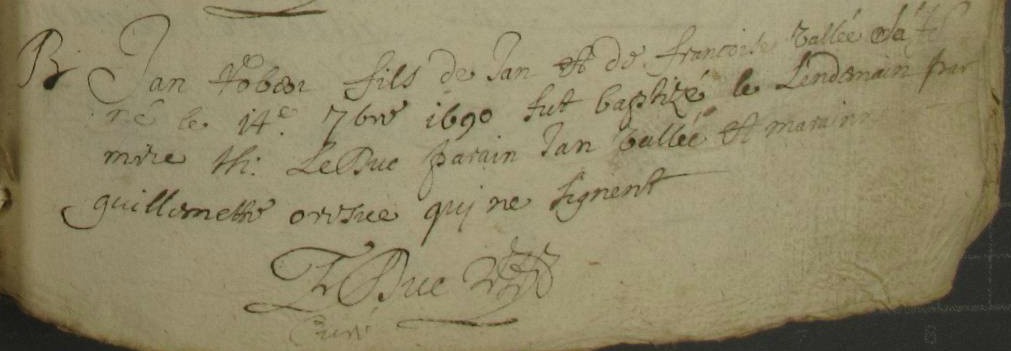 B Jan fils de Jan et de francoise Vallée sa fe
né le 14e 7bre 1690 fut baptizé le Lendemain par
mire th: LeDuc parain Jan Vallée et maraine
guillemette qui ne signent
LeDuc
Curé